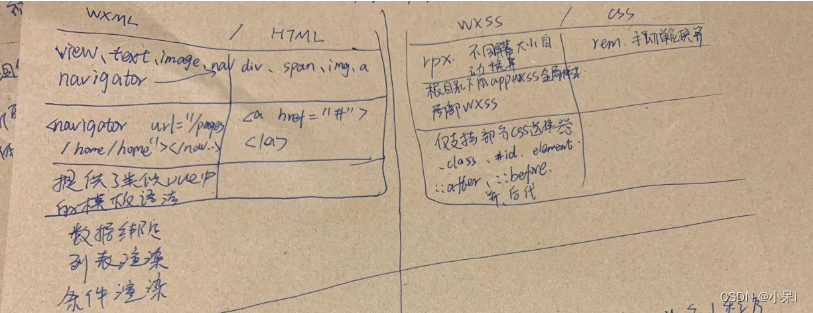 WXML / HTML
view、text、image、nav
navigator
div、span、img、a
<navigator url="/pages
/home/home"></nav..>
<a href="#">
</a>
提供了类似vue中
的模板语法
数据绑定
列表渲染
条件渲染
WXSS / CSS
rpx. 不同屏幕大小自
动换算
rem. 手动单位换算
根目录下有app.wxss全局样式
局部wxss
仅支持部分css选择器
.class、#id、element、
::after、::before、
并、后代
CSDN @小呆i